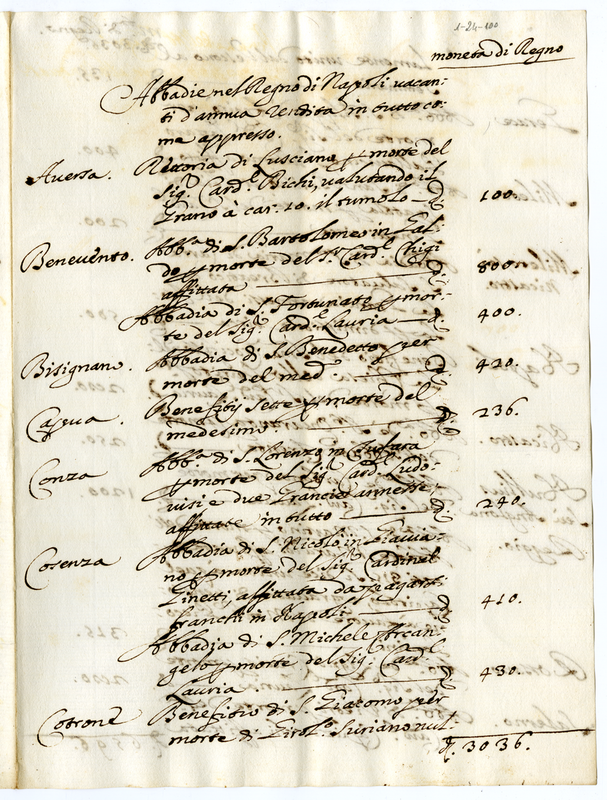 1-24-100
moneta di Regno
Abbadie nel Regno di Napoli vacan-
ti d'annua rendita in tutto co-
me appresso.
Aversa. Rettoria di Lusciano p morte del
Sig.r Card.l Bichi, valutando il
Grano à car. 10. il tumolo — D. 100.
Benevento. Abb.a di S. Bartolomeo in Gal-
do p morte del S.r Card.l Chigi
affittata — D. 800.
Abbadia di S. Fortunato p mor-
te del Sig.r Card.l Lauria — D. 400.
Bisignano. Abbadia di S. Benedetto per
morte del med.o — D. 420.
Capua. Benefitij sette p morte del
medesimo. — D. 236.
Conza Abb.a di S. Lorenzo in
p morte del Sig.r Card.l Ludo-
visi e due Grancie annesse,
affittate in tutto — D. 240.
Cosenza Abbadia di S. Nicolò in
no p morte del Sig.r Cardinal
Ginetti, affittata da pagarsi
franchi in Napoli — D. 410.
Abbadia di S. Michele Arcan-
gelo p morte del Sig.r Card.l
Lauria. — D. 430.
Cotrone Benefitio di S. Giacomo per
morte di Girol.o Suriano nul.
D. 3036.